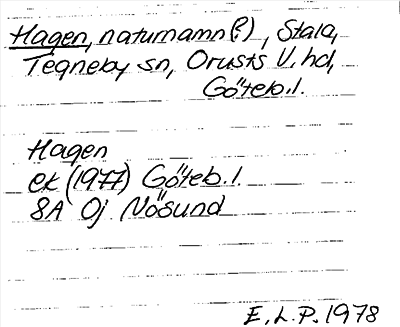 Hagen, naturnamn(?), Stala,
Tegneby sn, Orusts V. hd,
Göteb. l.
Hagen
ek (1977) Göteb. l.
8A Oj Nösund
E. L. P. 1978